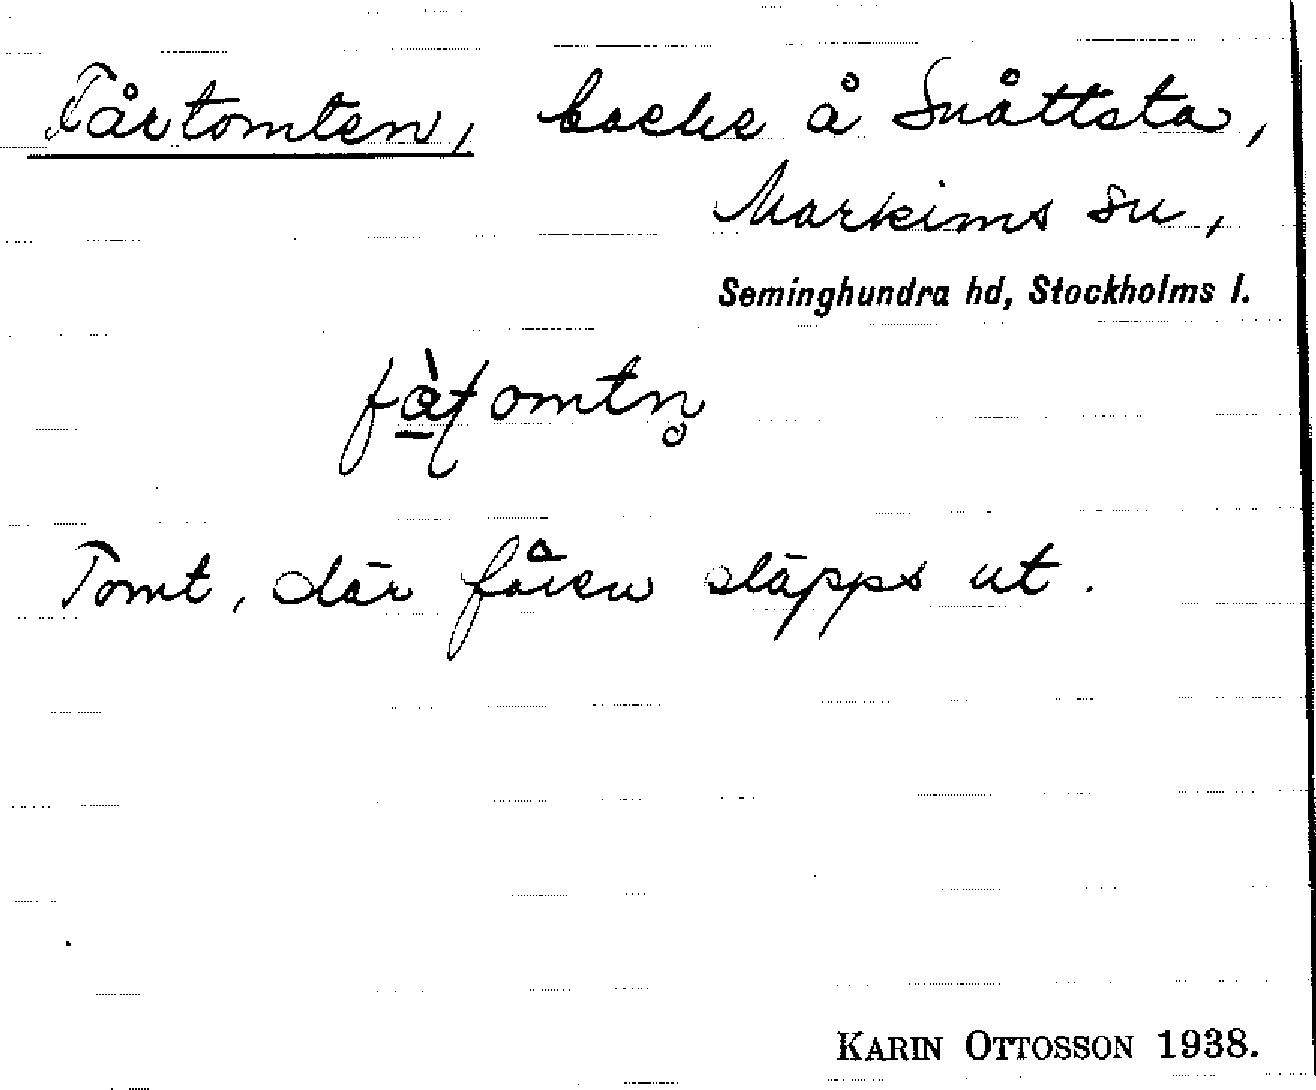 Fårtomten, backe å Snåttsta,
Markims sn,
Seminghundra hd, Stockholms l.
Tomt, där fåren släpps ut.
KARIN OTTOSSON 1938.